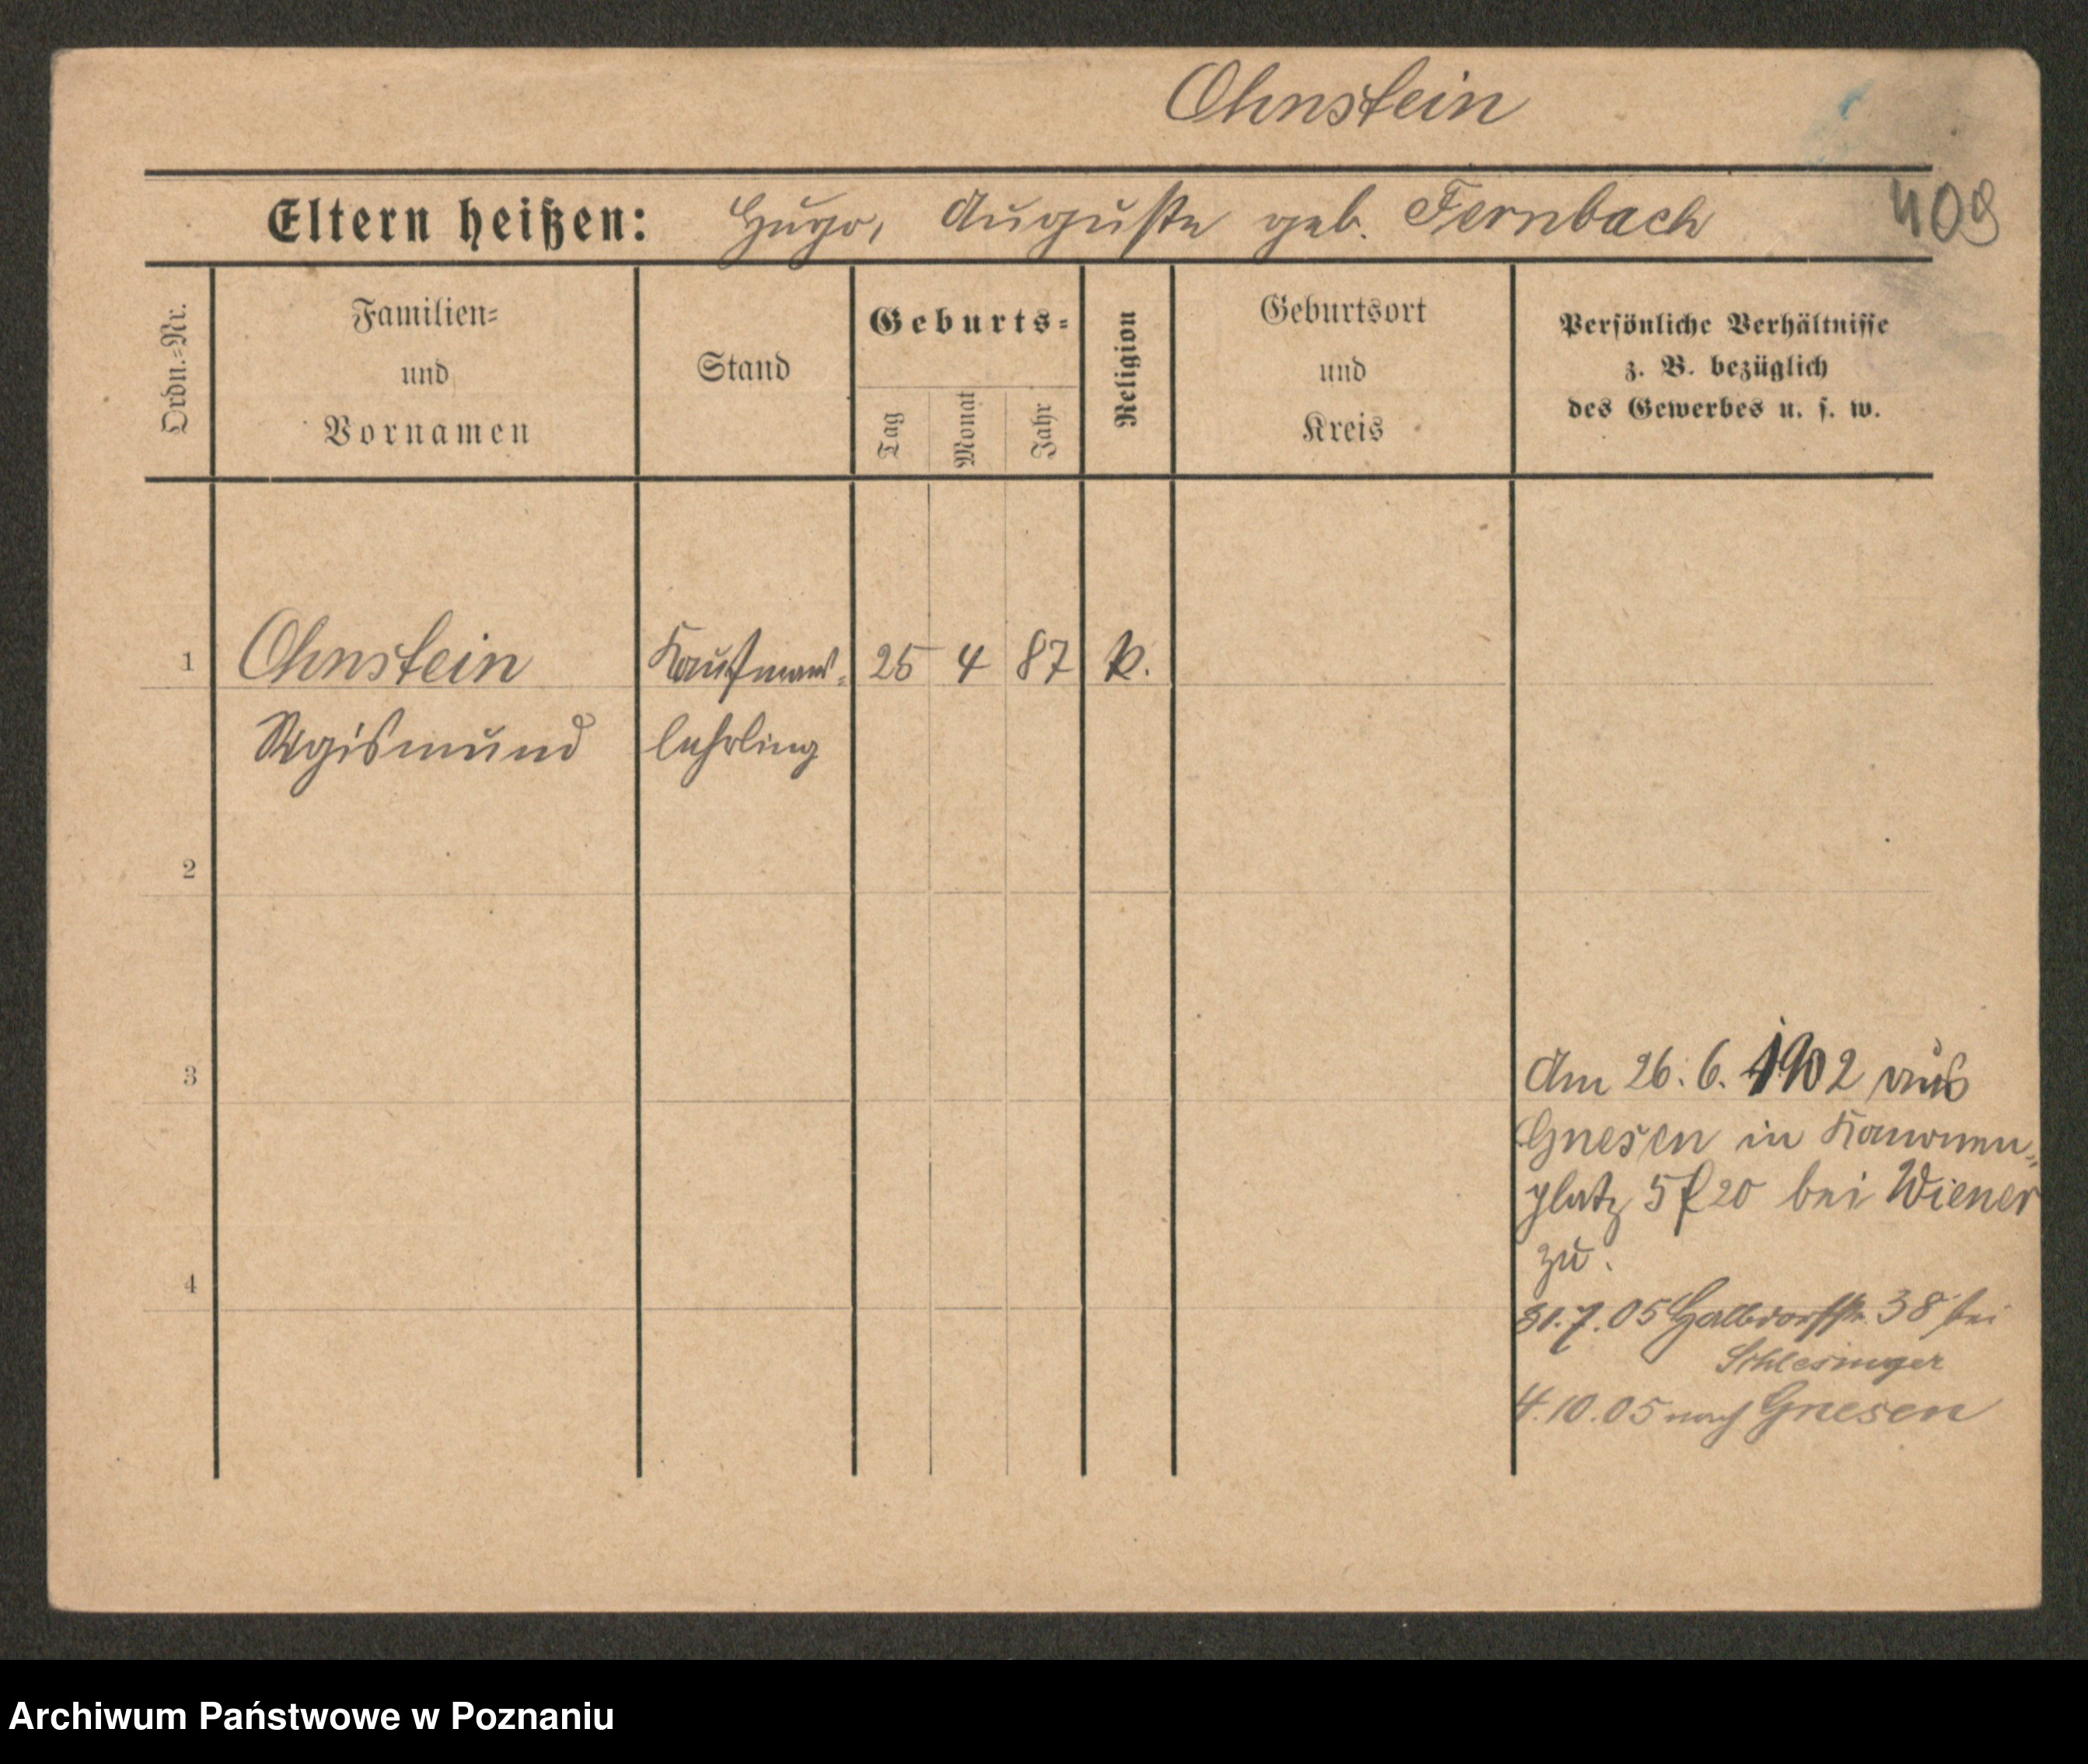 Ohnstein
Eltern heißen: Hugo, Auguste geb. Fernbach
409
Ordn.-Nr.
Familien-
und
Vornamen
Stand
Geburts-
Tag
Monat
Jahr
Religion
Geburtsort
und
Kreis
Persönliche Verhältnisse
z. B. bezüglich
des Gewerbes u. s. w.
1 Ohnstein Kaufmanns- 25 4 87
Sigismund lehrling
2
3
Am 26.6.1902 aus
Gnesen in Kanonen-
platz 5 20 bei Wiener
zu.
4
31.7.05 Halbdorfstr. 38 bei
Schlesinger
4.10.05 nach Gnesen
Archiwum Państwowe w Poznaniu